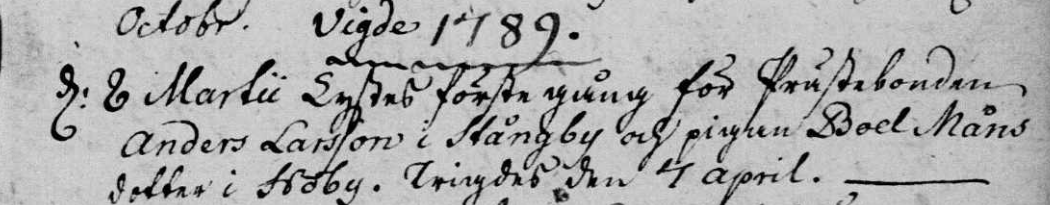 Octobr. Vigde 1789.
d: 8 Martii Lystes förste gung för Prustebonden
Anders Larsson i Stångby och pigan Boel Måns
dotter i Hoby. Vigdes den 4 april.